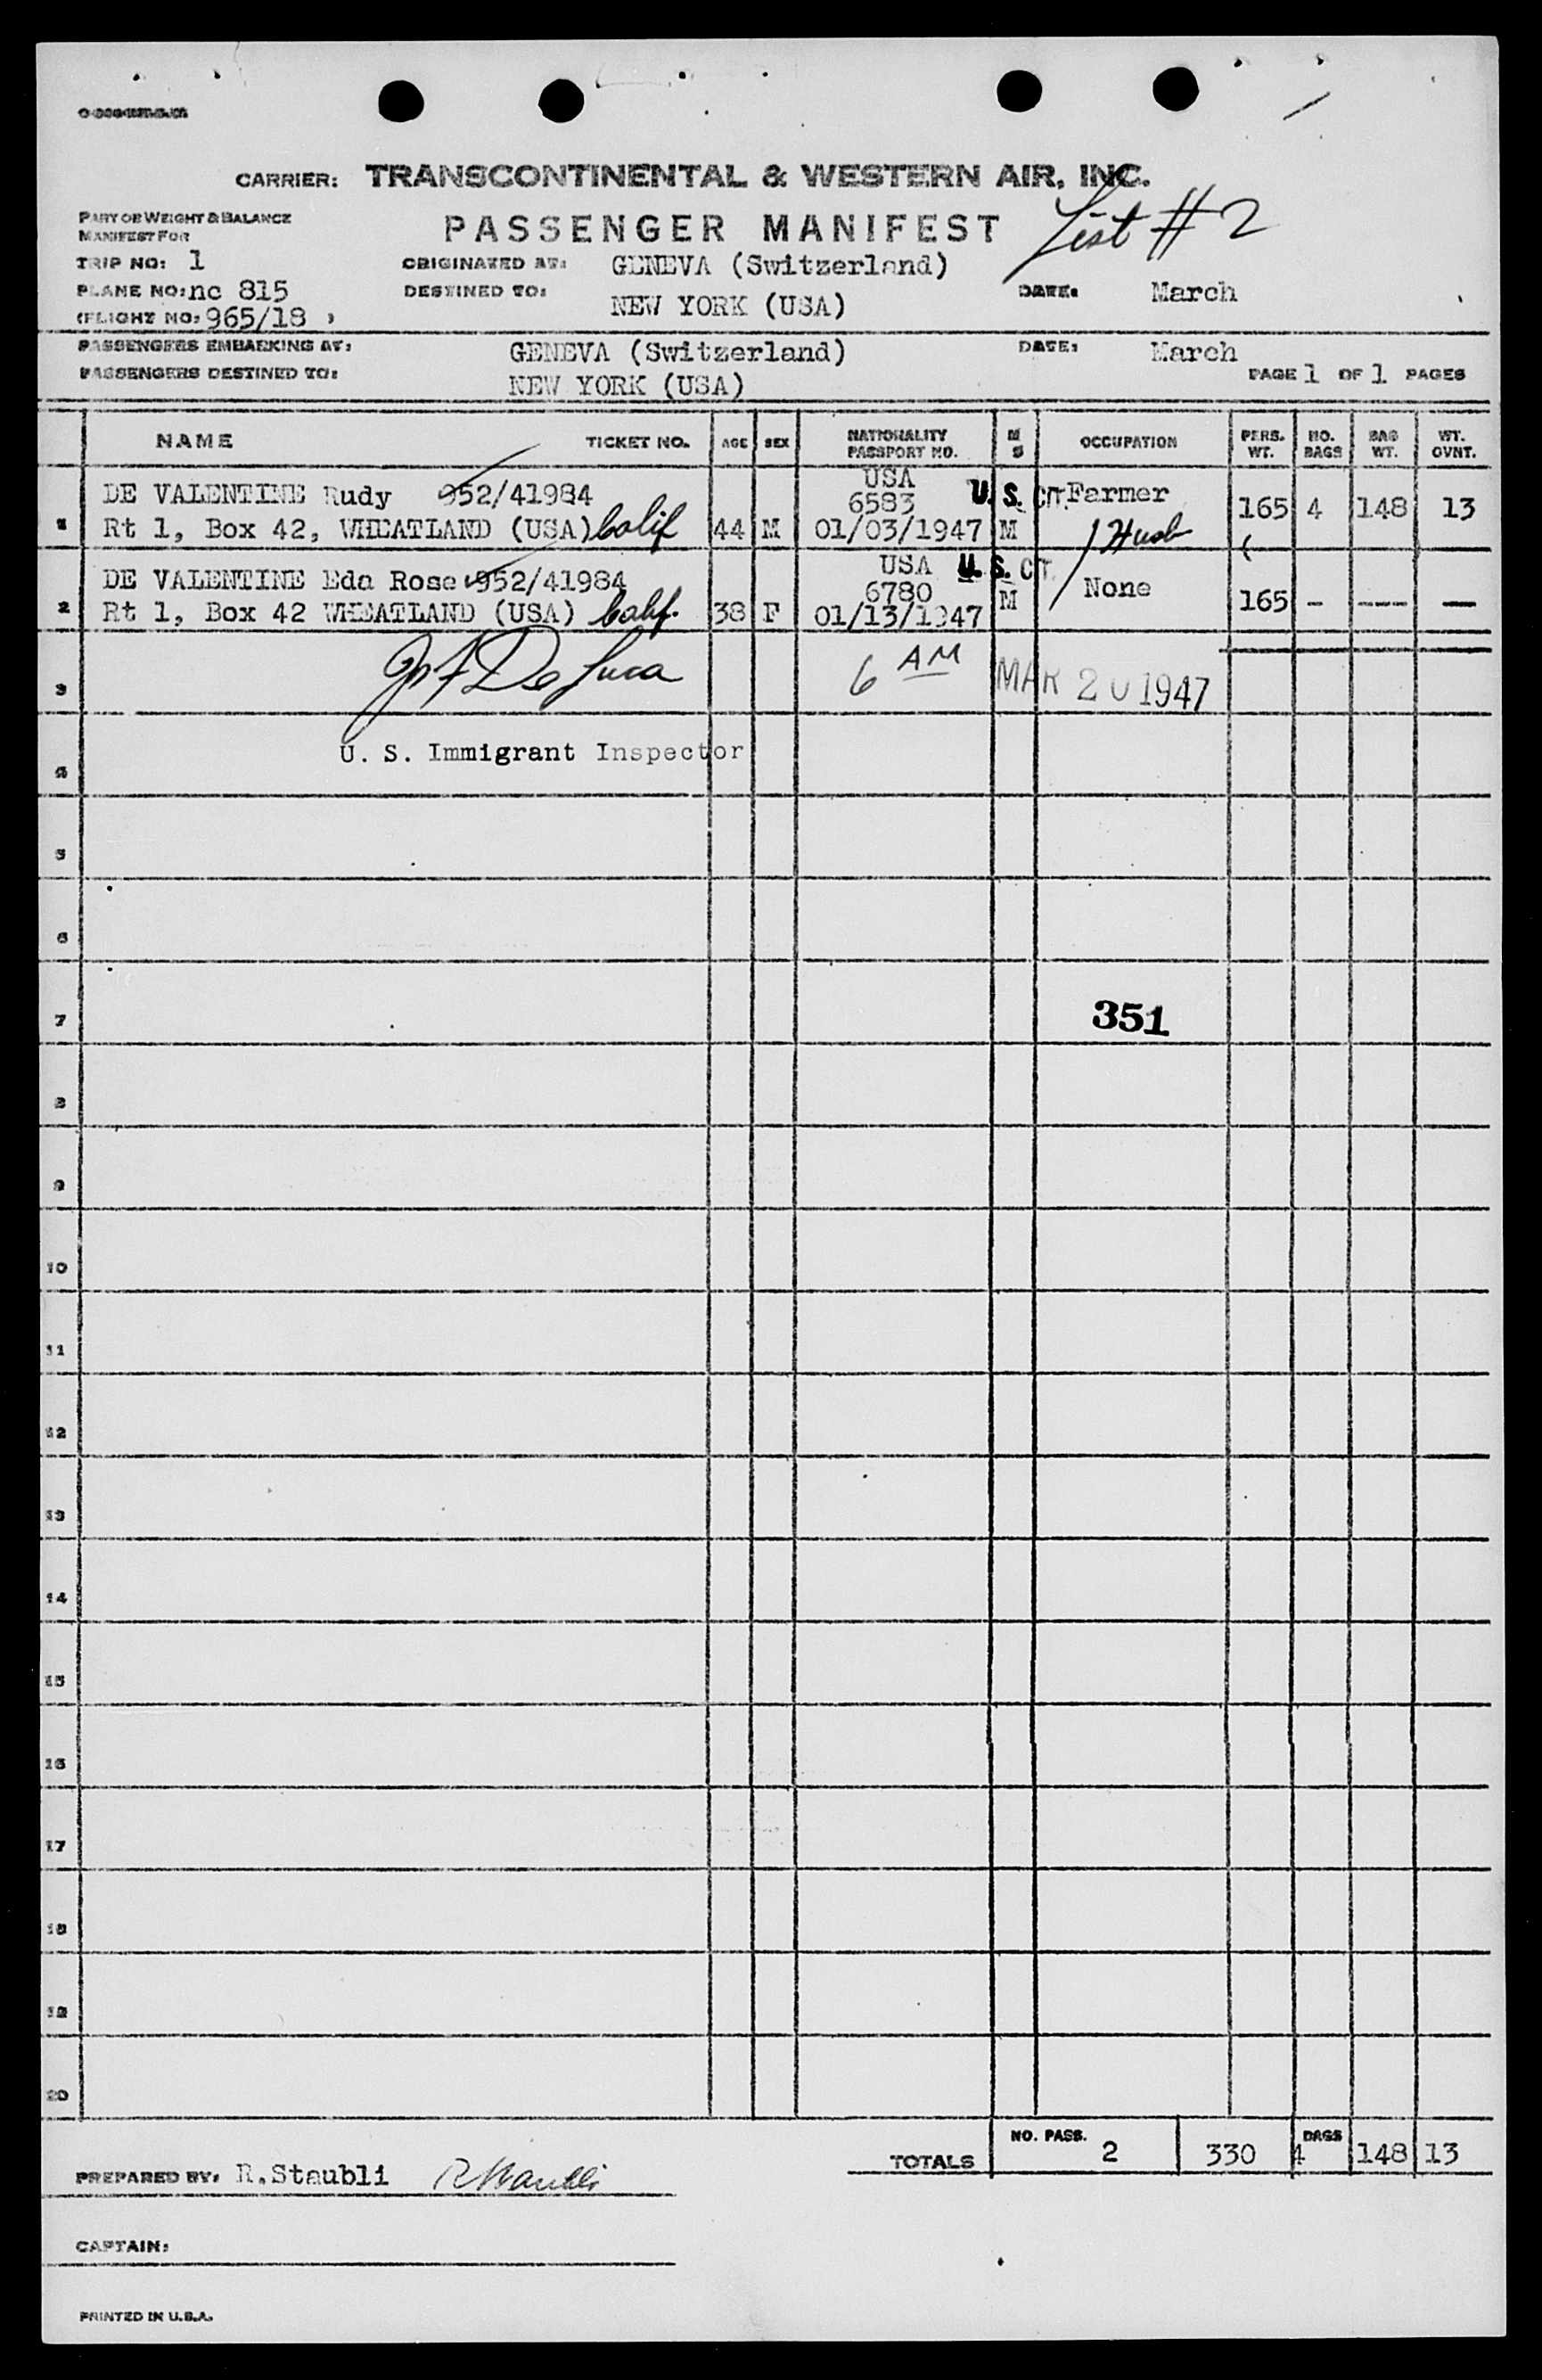 CARRIER: TRANSCONTINENTAL & WESTERN AIR, INC.
PART OF WEIGHT & BALANCE
MANIFEST FOR
PASSENGER MANIFEST List #2
TRIP NO: 1 ORIGINATED AT: GENEVA (Switzerland)
PLANE NO: nc 815 DESTINED TO: NEW YORK (USA) DATE: March
(FLIGHT NO: 965/18 )
PASSENGERS EMBARKING AT: GENEVA (Switzerland) DATE: March
PASSENGERS DESTINED TO: NEW YORK (USA) PAGE 1 OF 1 PAGES
NAME TICKET NO. AGE SEX NATIONALITY PASSPORT NO. M S OCCUPATION PERS. WT. NO. BAGS BAG WT. WT. OVNT.
USA
DE VALENTINE Rudy 952/41984 6583 U. S. CIT. Farmer
1 Rt 1, Box 42, WHEATLAND (USA) Calif 44 M 01/03/1947 M 165 4 148 13
Husb
USA U. S. CIT.
DE VALENTINE Eda Rose 952/41984 6780 None
2 Rt 1, Box 42 WHEATLAND (USA) Calif. 38 F 01/13/1947 M 165 - --- —
3 De Luca 6 AM MAR 20 1947
U. S. Immigrant Inspector
4
5
6
7 351
8
9
10
11
12
13
14
15
16
17
18
19
20
TOTALS NO. PASS. 2 330 BAGS 4 148 13
PREPARED BY: R.Staubli RStaubli
CAPTAIN:
PRINTED IN U.S.A.